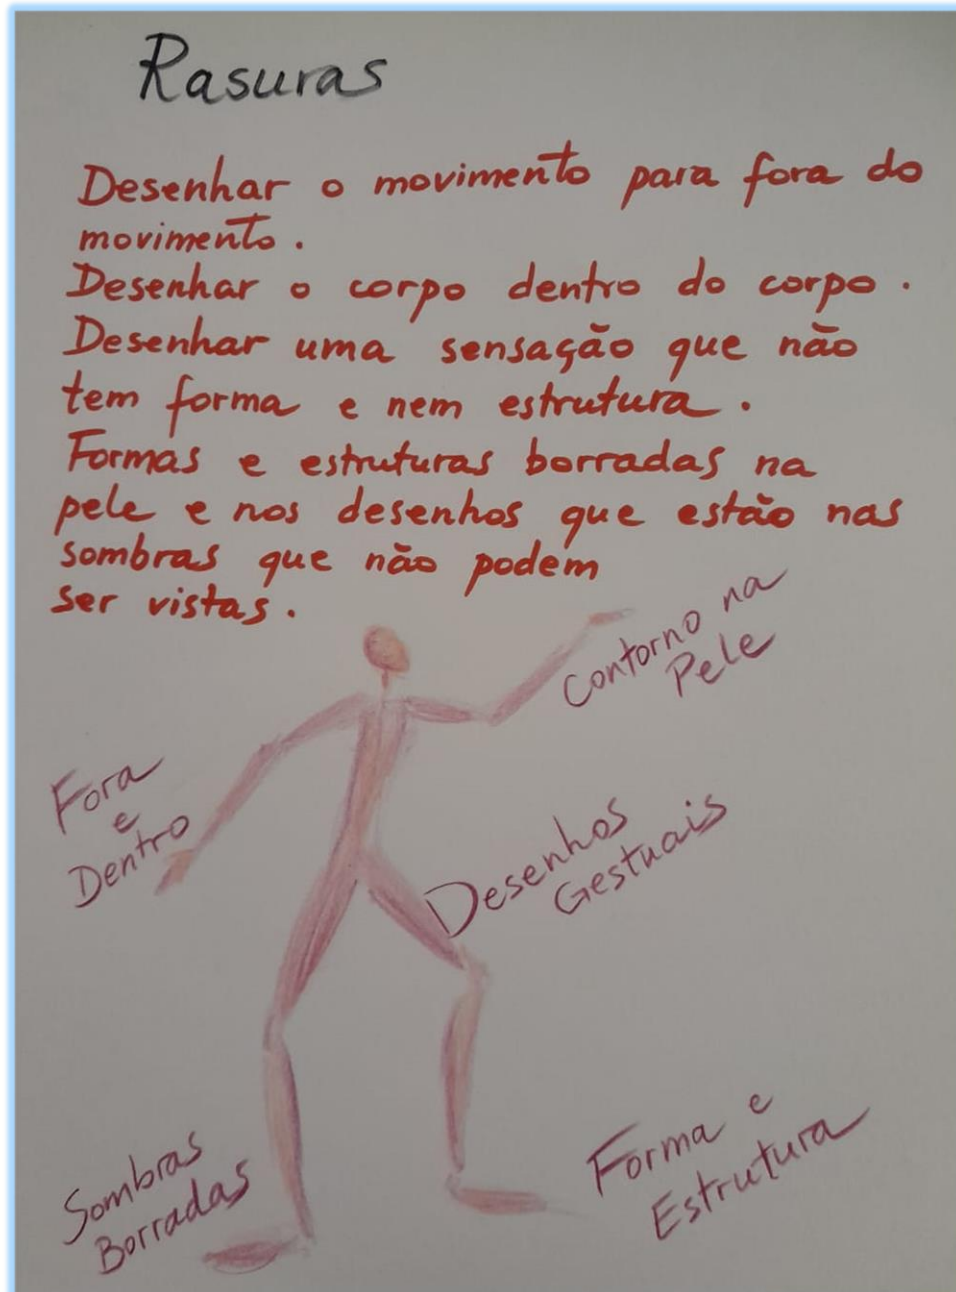 Rasuras
Desenhar o movimento para fora do
movimento.
Desenhar o corpo dentro do corpo.
Desenhar uma sensação que não
tem forma e nem estrutura.
Formas e estruturas borradas na
pele e nos desenhos que estão nas
sombras que não podem
ser vistas.
Contorno na
Pele
Fora
e
Dentro
Desenhos
Gestuais
Sombras
Borradas
Forma e
Estrutura